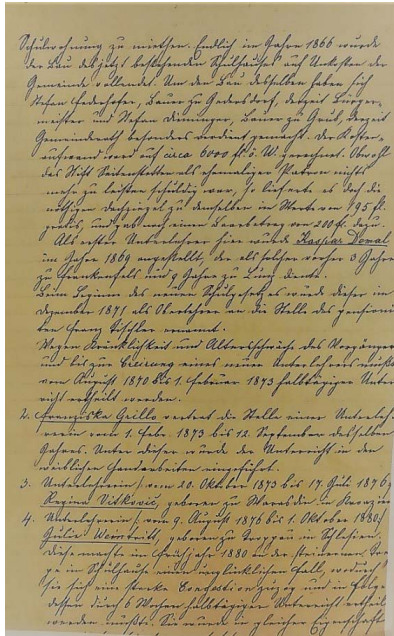 Schulwohnung zu miethen. Endlich im Jahre 1866 wurde
der Bau des jetzt bestehenden Schulhauses auf Unkosten der
Gemeinde vollendet. Um den Bau desselben haben sich
Stefan Federhofer, Bauer zu Gedersdorf, derzeit Bürger-
meister und Stefan Dirninger, Bauer zu Grub, derzeit
Gemeinderath besonders verdient gemacht. Der Kosten-
aufwand ward auf circa 6000 fl. ö. W. gerechnet. Obwohl
das Stift Seitenstetten als ehemaliger Patron nichts
mehr zu leisten schuldig war, so lieferte es doch die
nöthigen Dachziegel zu demselben im Werte von 195 fl.
gratis, und gab noch einen Baarbetrag von 200 fl. dazu.
Als erster Unterlehrer hier wurde Kaspar
im Jahre 1869 angestellt, der als solcher vorher 3 Jahre
zu Frankenfels und 9 Jahre zu Lunz diente.
Beim Beginne des neuen Schulgesetzes wurde dieser im
Dezember 1871 als Oberlehrer an die Stelle des pensionir-
ten Franz Tischler ernannt.
Wegen Kränklichkeit und Altersschwäche des Vorgängers
und bis zur Creirung eines neuen Unterlehrers mußte
vom August 1870 bis 1. Februar 1873 halbtägiger Unter-
richt ertheilt werden.
2. Franziska Grillo vertrat die Stelle einer Unterleh-
rerin vom 1. Febr. 1873 bis 12. September desselben
Jahres. Unter dieser wurde der Unterricht in den
weiblichen Handarbeiten eingeführt.
3. Unterlehrerin (vom 20. Oktober 1873 bis 17. Juli 1876)
Regina Vitković, geboren zu Warasdin in Kroazien
4. Unterlehrerin (vom 9. August 1876 bis 1. Oktober 1880)
Julie Weintritt, geboren zu Troppau in Schlesien.
Diese machte im Frühjahr 1880 an der steinernen Trep-
pe im Schulhause einen unglücklichen Fall, wodurch
sie sich eine starke Congestion zuzog und in Folge
dessen durch 6 Wochen halbtägiger Unterricht ertheilt
werden mußte. Sie wurde in gleicher Eigenschaft